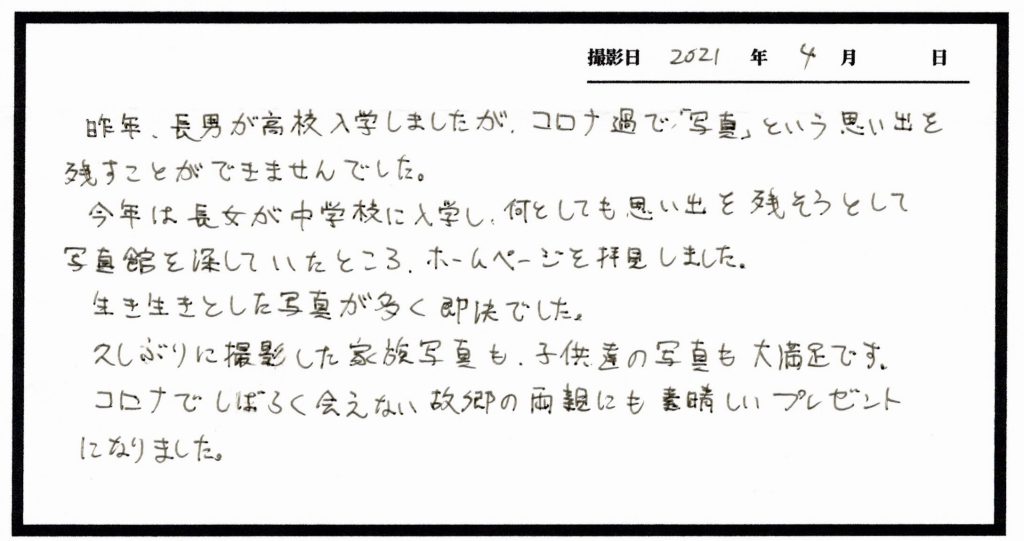 撮影日 2021 年 4 月 日
昨年、長男が高校入学しましたが、コロナ過で「写真」という思い出を
残すことができませんでした。
今年は長女が中学校に入学し、何としても思い出を残そうとして
写真館を探していたところ、ホームページを拝見しました。
生き生きとした写真が多く即決でした。
久しぶりに撮影した家族写真も、子供達の写真も大満足です。
コロナでしばらく会えない故郷の両親にも素晴しいプレゼント
になりました。